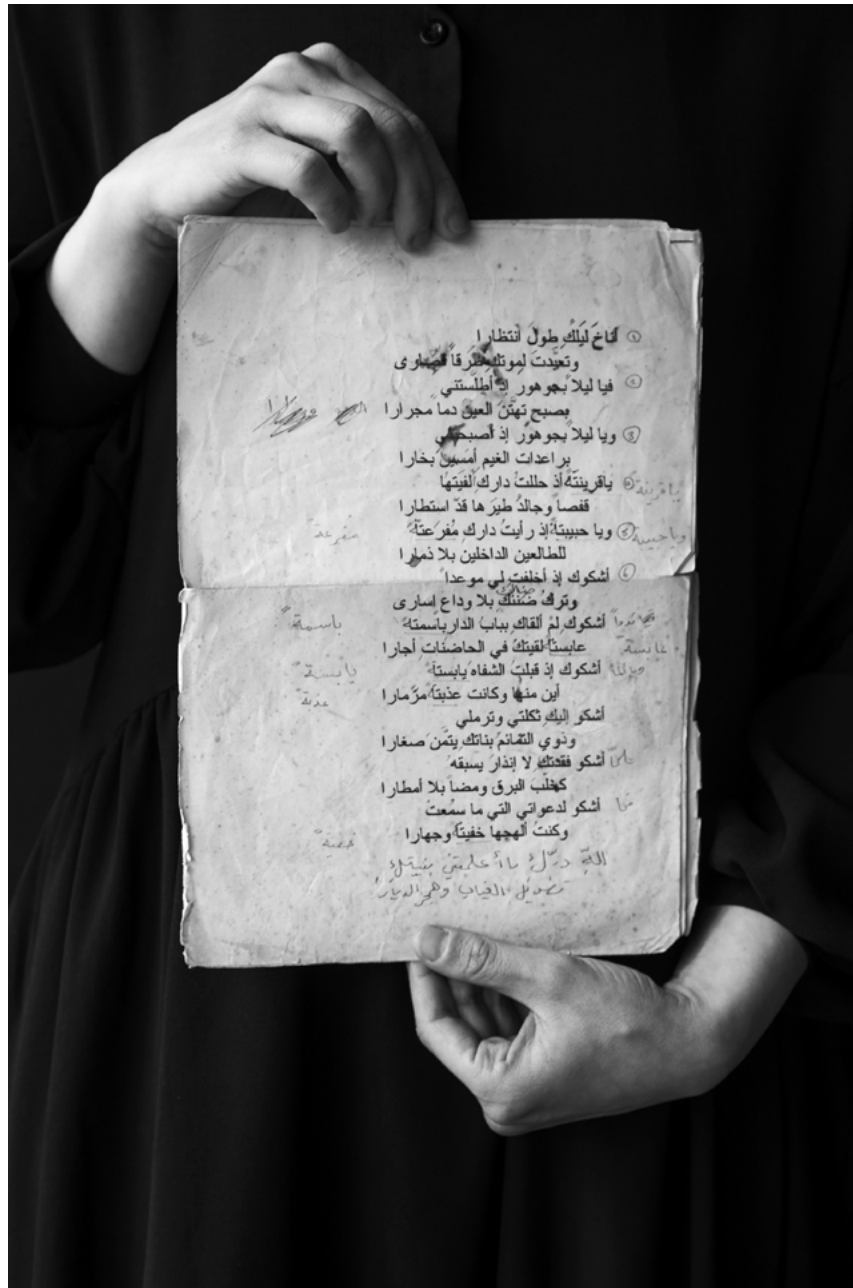 ١ أناخَ ليَلكِ طولَ أنتظارا
وتعبّدت لموتكِ طرقاً قصّارى
٢ فيا ليلاً بجوهور إذ أطلستني
بصبح تهتّنَ العين دماً مجرارا
٣ ويا ليلاً بجوهور إذ أصبحتني
براعدات الغيم أمسين بخارا
٤ ياقرينتةً أذ حللتُ دارك ألفيتها ياقرينة
قفصاً وجالدُ طيرَها قدّ استطارا
٥ ويا حبيبتةً إذ رأيتُ داركِ مُفرَعتةً وياحبيبة مفرعة
للطالعين الداخلين بلا ذمارا
٦ أشكوك إذ أخلفتِ لي موعداً
وتركُ ضنكٌ بلا وداع إسارى
أشكوك لمْ ألقاكِ ببابُ الدار باسمتةً باسمةً
عابستاً لقيتكُ في الحاضنات أجارا عابسة
أشكوك إذ قبلتِ الشفاه يابستاً يابسةً
أين منها وكانت عذبتاً مزّمارا عذبة
أشكو إليكِ ثكلتي وترملي
وذوي التمائمُ بناتك يتمّن صغارا
أشكو فقدتكِ لا إنذارَ يسبقه
كخلّب البرق ومضاً بلا أمطارا
أشكو لدعواتي التي ما سمُعتْ
وكنتُ ألهجها خفيتاً وجهارا خفيةً
اللهِ درّكِ ما علمتني بنيتكِ
تطويل الغياب وهجر الديارا